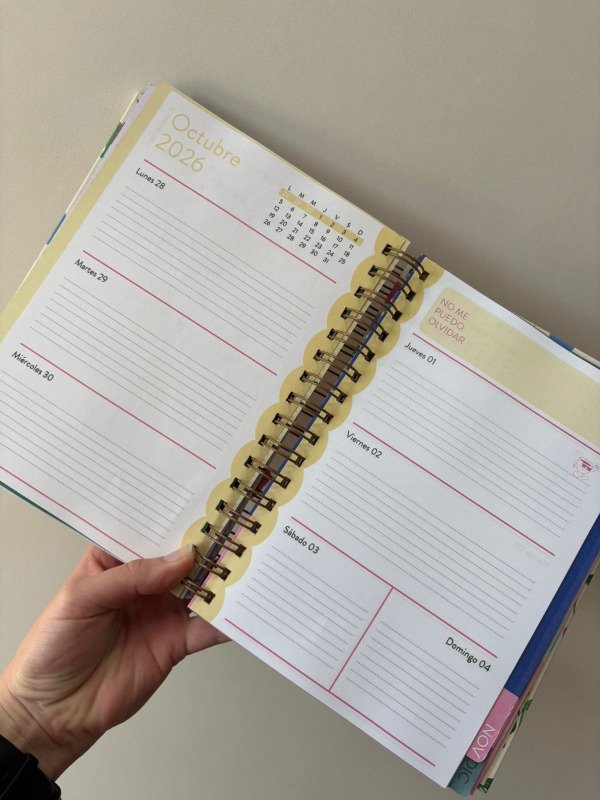 Octubre
2026
L M M J V S D
1 2 3 4
5 6 7 8 9 10 11
12 13 14 15 16 17 18
19 20 21 22 23 24 25
26 27 28 29 30 31
Lunes 28
Martes 29
Miércoles 30
NO ME
PUEDO
OLVIDAR
Jueves 01
Viernes 02
Sábado 03
Domingo 04
NOV
DIC